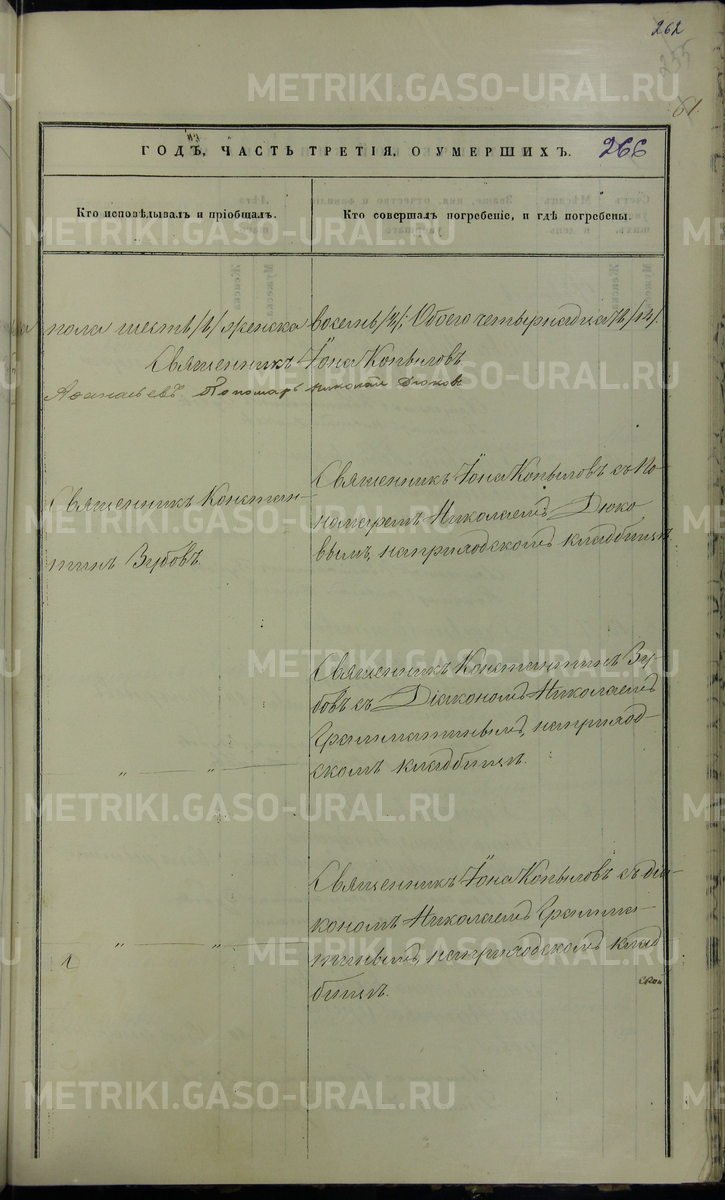 262
255
61.
из
ГОДЪ, ЧАСТЬ ТРЕТІЯ, О УМЕРШИХЪ.
266
Кто исповѣдывалъ и пріобщалъ.
Кто совершалъ погребеніе, и гдѣ погребены.
пола шесть /6/ женска восемь /8/; Обоего четырнадцать /14/.
Священникъ Іона Копыловъ
Аѳанасьевъ. Пономарь Николай Дюковъ
Священникъ Констан-
тинъ Зубовъ.
Священникъ Іона Копыловъ съ По
номаремъ Николаемъ Дюко
вымъ, на приходскомъ кладбищѣ.
Священникъ Константинъ Зу-
бовъ съ Діакономъ Николаемъ
Грамматинымъ, на приход-
скомъ кладбищѣ.
" — "
Священникъ Іона Копыловъ съ діа-
кономъ Николаемъ Грамма-
тинымъ, на приходскомъ клад
бищѣ.
" — "
METRIKI.GASO-URAL.RU
METRIKI.GASO-URAL.RU
METRIKI.GASO-URAL.RU
METRIKI.GASO-URAL.RU
METRIKI.GASO-URAL.RU
METRIKI.GASO-URAL.RU
METRIKI.GASO-URAL.RU
METRIKI.GASO-URAL.RU